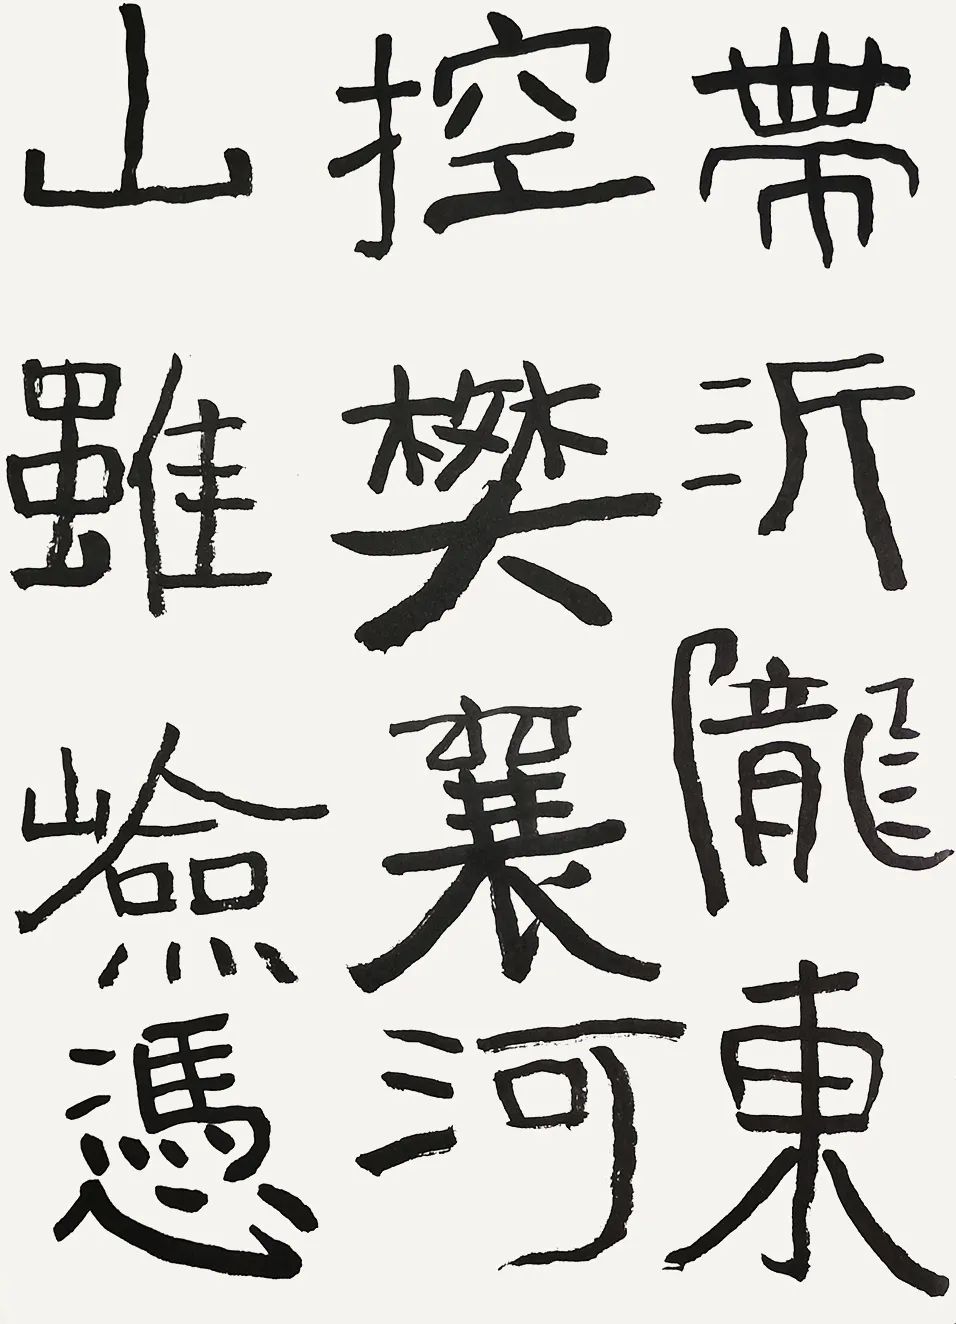 帶沂隴東
控樊襄河
山雖嶮憑